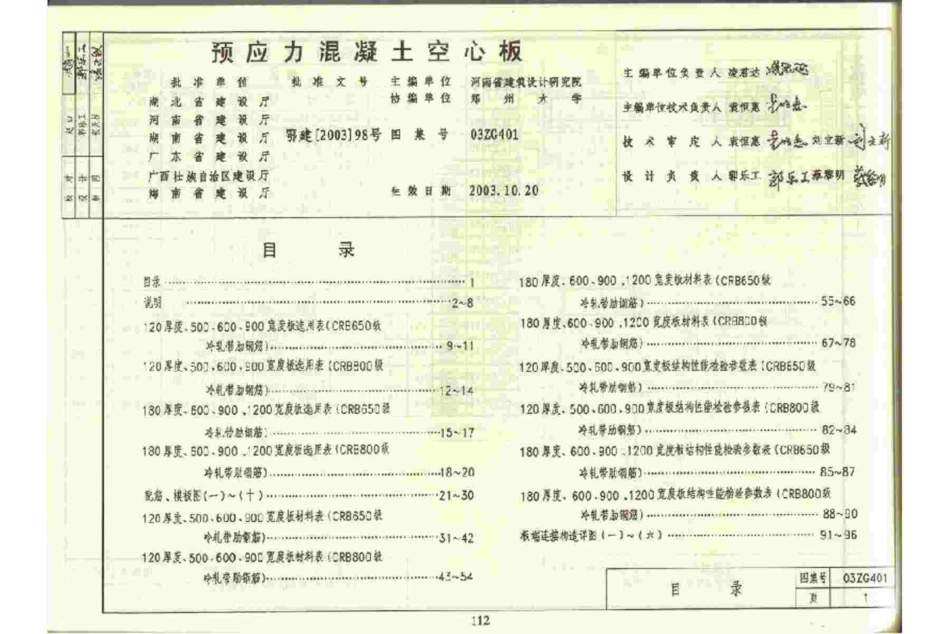 预应力混凝土空心板
批准单位 批准文号 主编单位 河南省建筑设计研究院
湖北省建设厅 协编单位 郑州大学
河南省建设厅
湖南省建设厅 鄂建[2003]98号 图集号 03ZG401
广东省建设厅
广西壮族自治区建设厅
海南省建设厅 生效日期 2003.10.20
主编单位负责人 凌君达
主编单位技术负责人 袁恒惠
技术审定人 袁恒惠 刘立新 刘立新
设计负责人 郭乐工 郭乐工 蔡黎明
目录
目录 1
说明 2~8
120厚度、500、600、900宽度板选用表(CRB650级
冷轧带肋钢筋) 9~11
120厚度、500、600、900宽度板选用表(CRB800级
冷轧带肋钢筋) 12~14
180厚度、600、900、1200宽度板选用表(CRB650级
冷轧带肋钢筋) 15~17
180厚度、600、900、1200宽度板选用表(CRB800级
冷轧带肋钢筋) 18~20
配筋、模板图(一)~(十) 21~30
120厚度、500、600、900宽度板材料表(CRB650级
冷轧带肋钢筋) 31~42
120厚度、500、600、900宽度板材料表(CRB800级
冷轧带肋钢筋) 43~54
180厚度、600、900、1200宽度板材料表(CRB650级
冷轧带肋钢筋) 55~66
180厚度、600、900、1200宽度板材料表(CRB800级
冷轧带肋钢筋) 67~78
120厚度、500、600、900宽度板结构性能检验参数表(CRB650级
冷轧带肋钢筋) 79~81
120厚度、500、600、900宽度板结构性能检验参数表(CRB800级
冷轧带肋钢筋) 82~84
180厚度、600、900、1200宽度板结构性能检验参数表(CRB650级
冷轧带肋钢筋) 85~87
180厚度、600、900、1200宽度板结构性能检验参数表(CRB800级
冷轧带肋钢筋) 88~90
板端连接构造详图(一)~(六) 91~96
目录 图集号 03ZG401
页 1
112